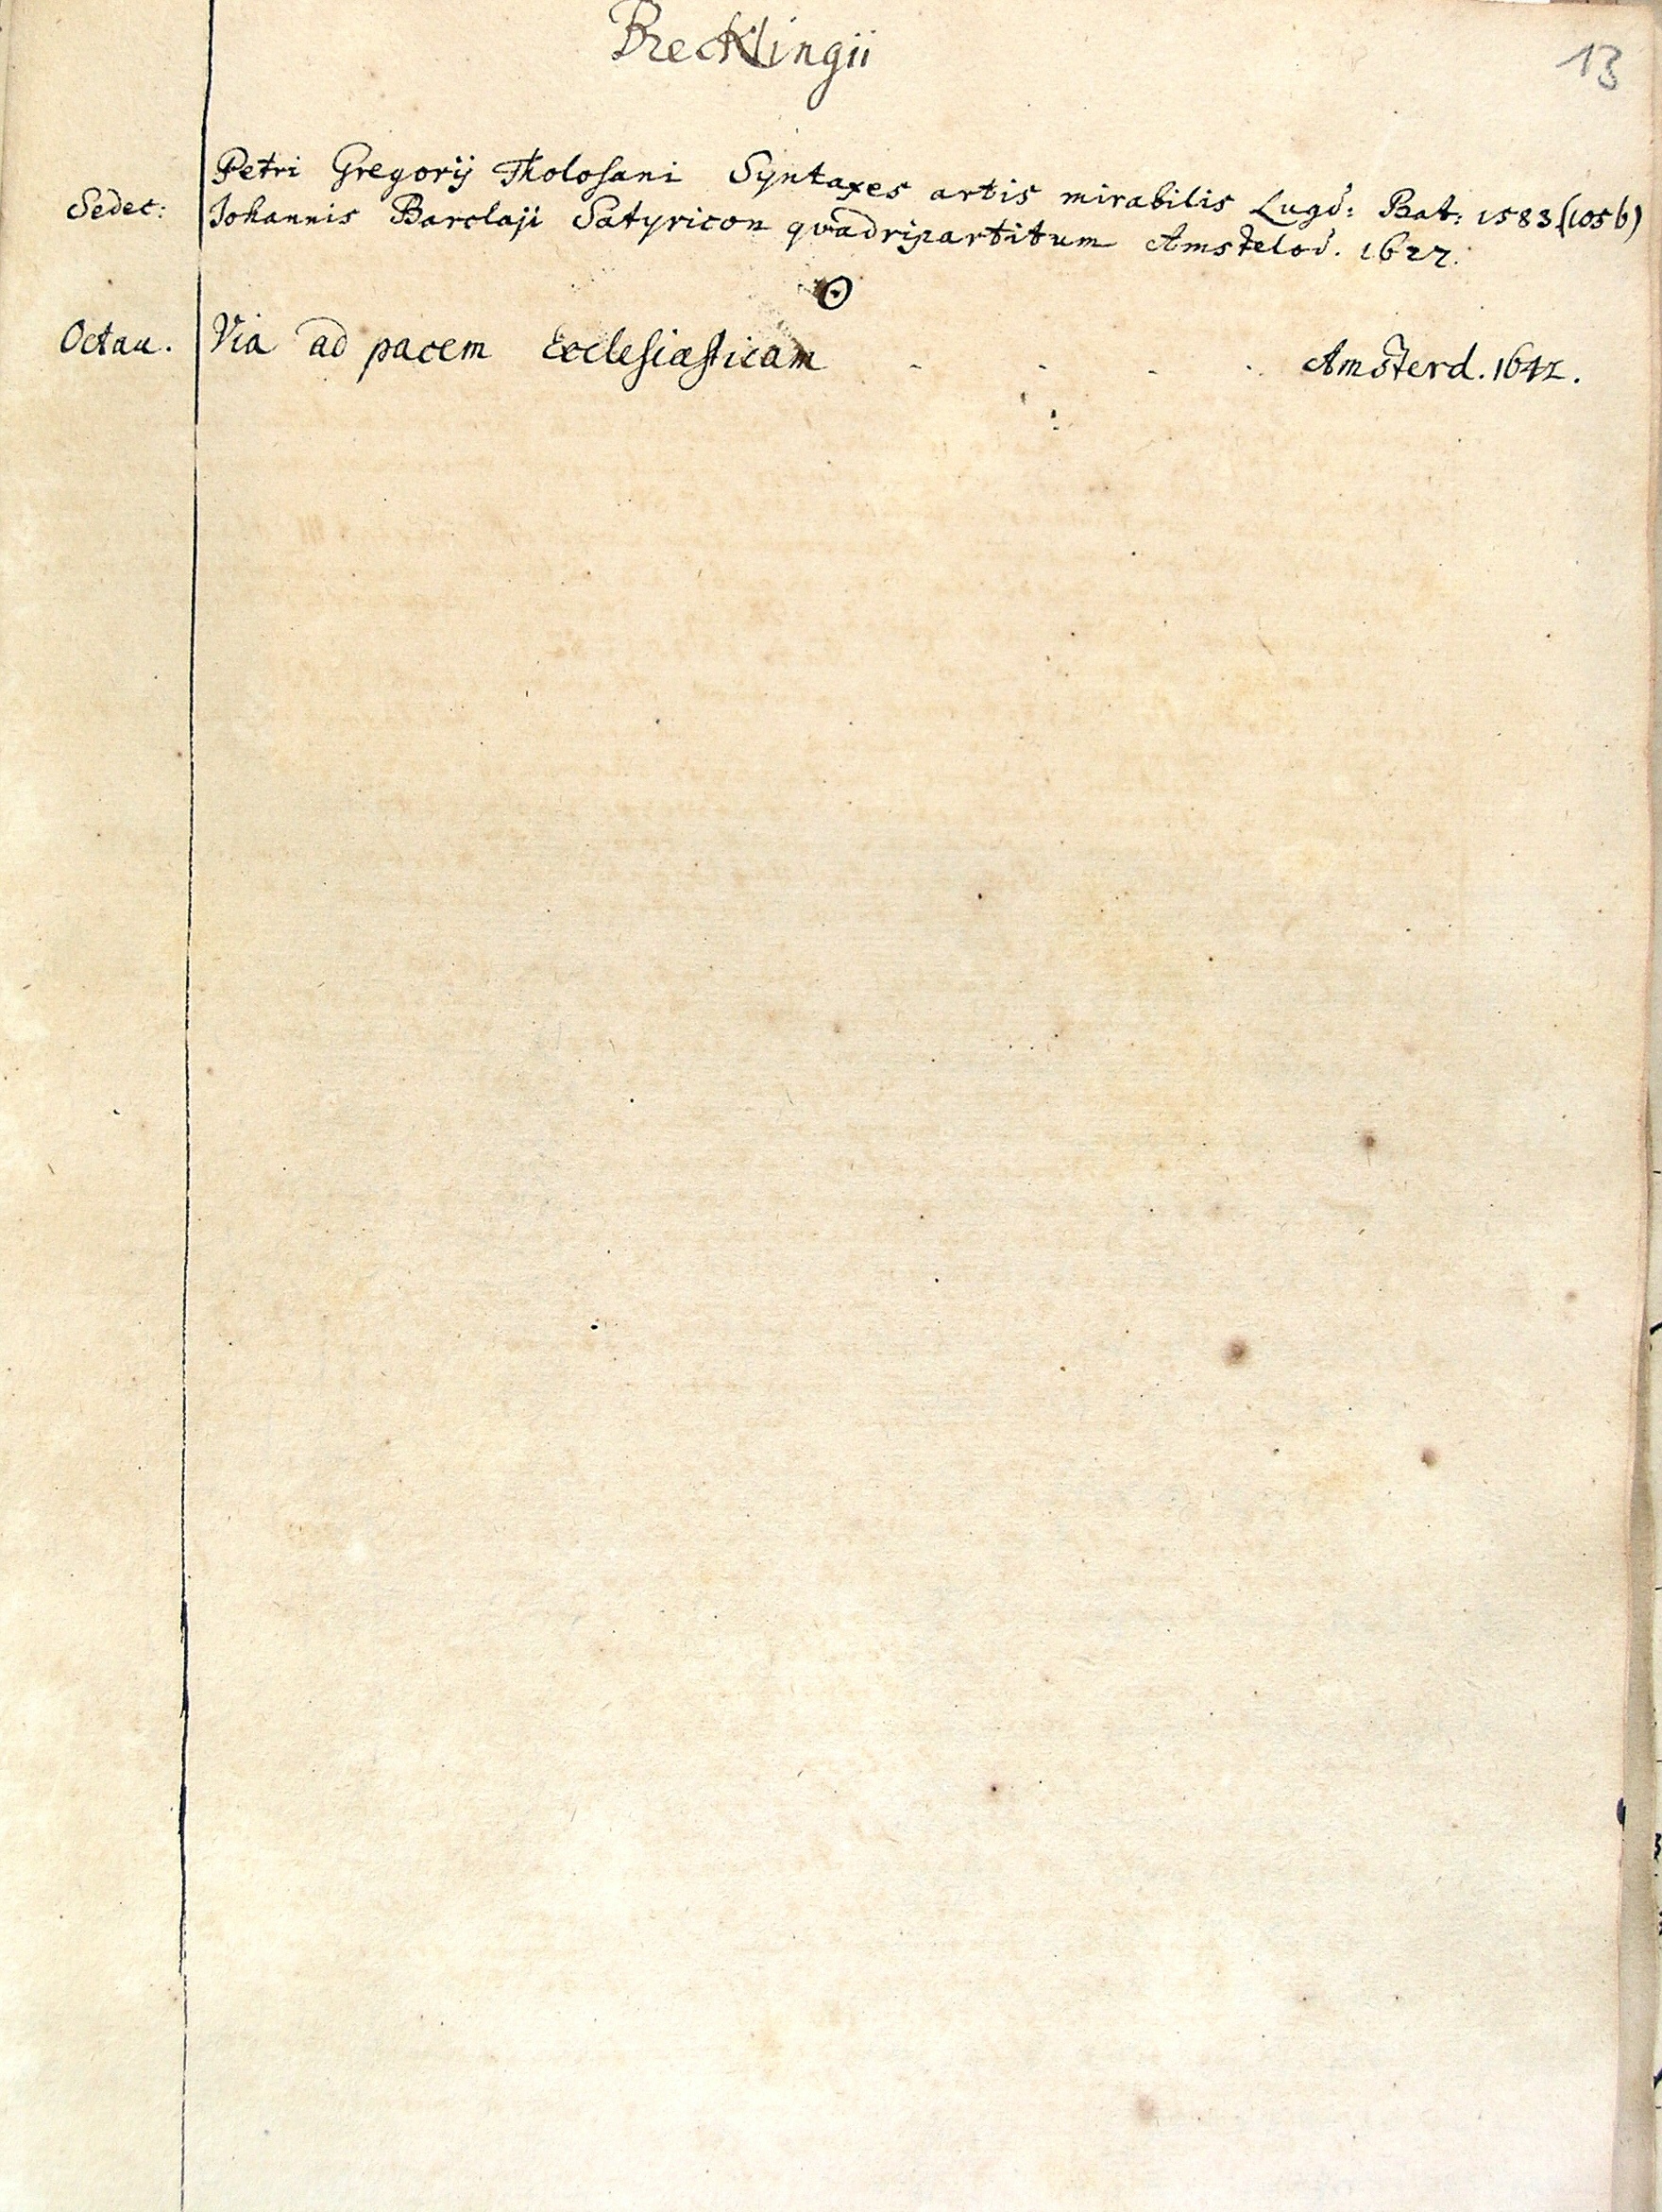 Brecklingii
13
Petri Gregorij Tholosani Syntaxes artis mirabilis Lugd: Bat: 1583 (1056)
Sedec: Johannis Barclaji Satyricon quadripartitum Amstelod. 1627.
Octau. Via ad pacem Ecclesiasticam - - - - Amsterd. 1642.